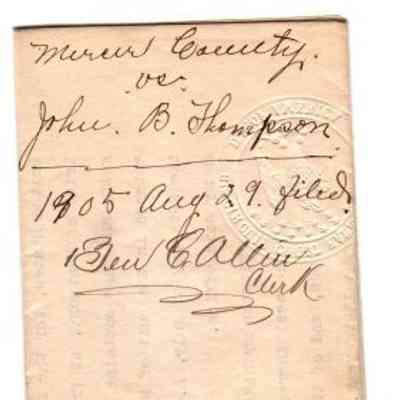 Mercer County.
vs.
John. B. Thompson.
1905 Aug 29. filed.
Ben C Allin
Clerk